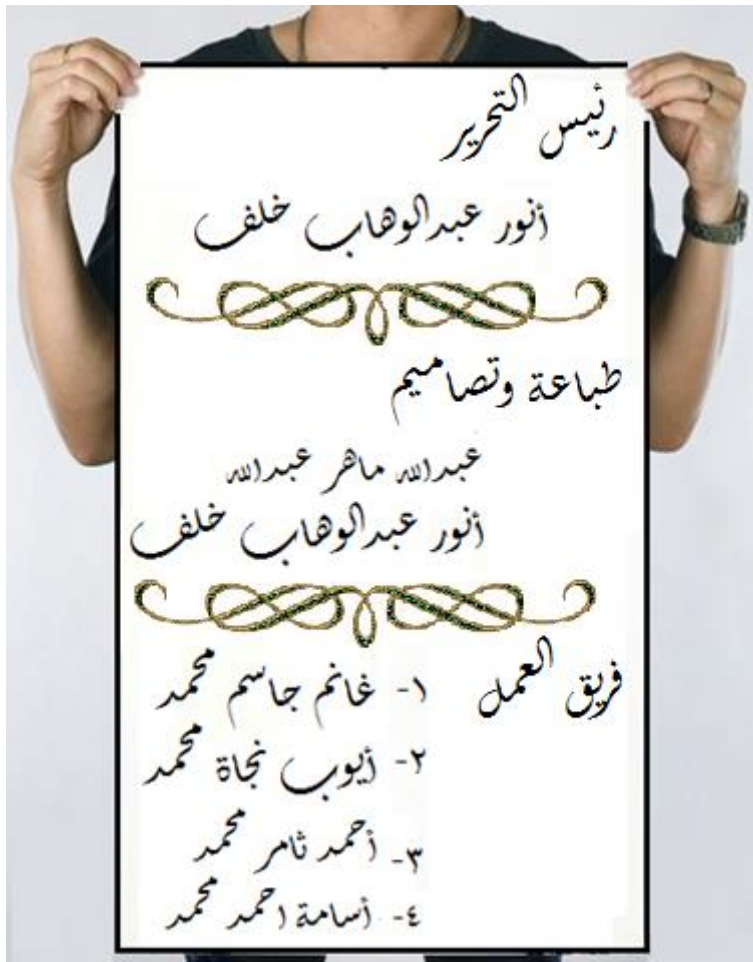 رئيس التحرير
أنور عبدالوهاب خلف
طباعة وتصاميم
عبدالله ماهر عبدالله
أنور عبدالوهاب خلف
فريق العمل ١- غانم جاسم محمد
٢- أيوب نجاة محمد
٣- أحمد ثامر محمد
٤- أسامة احمد محمد